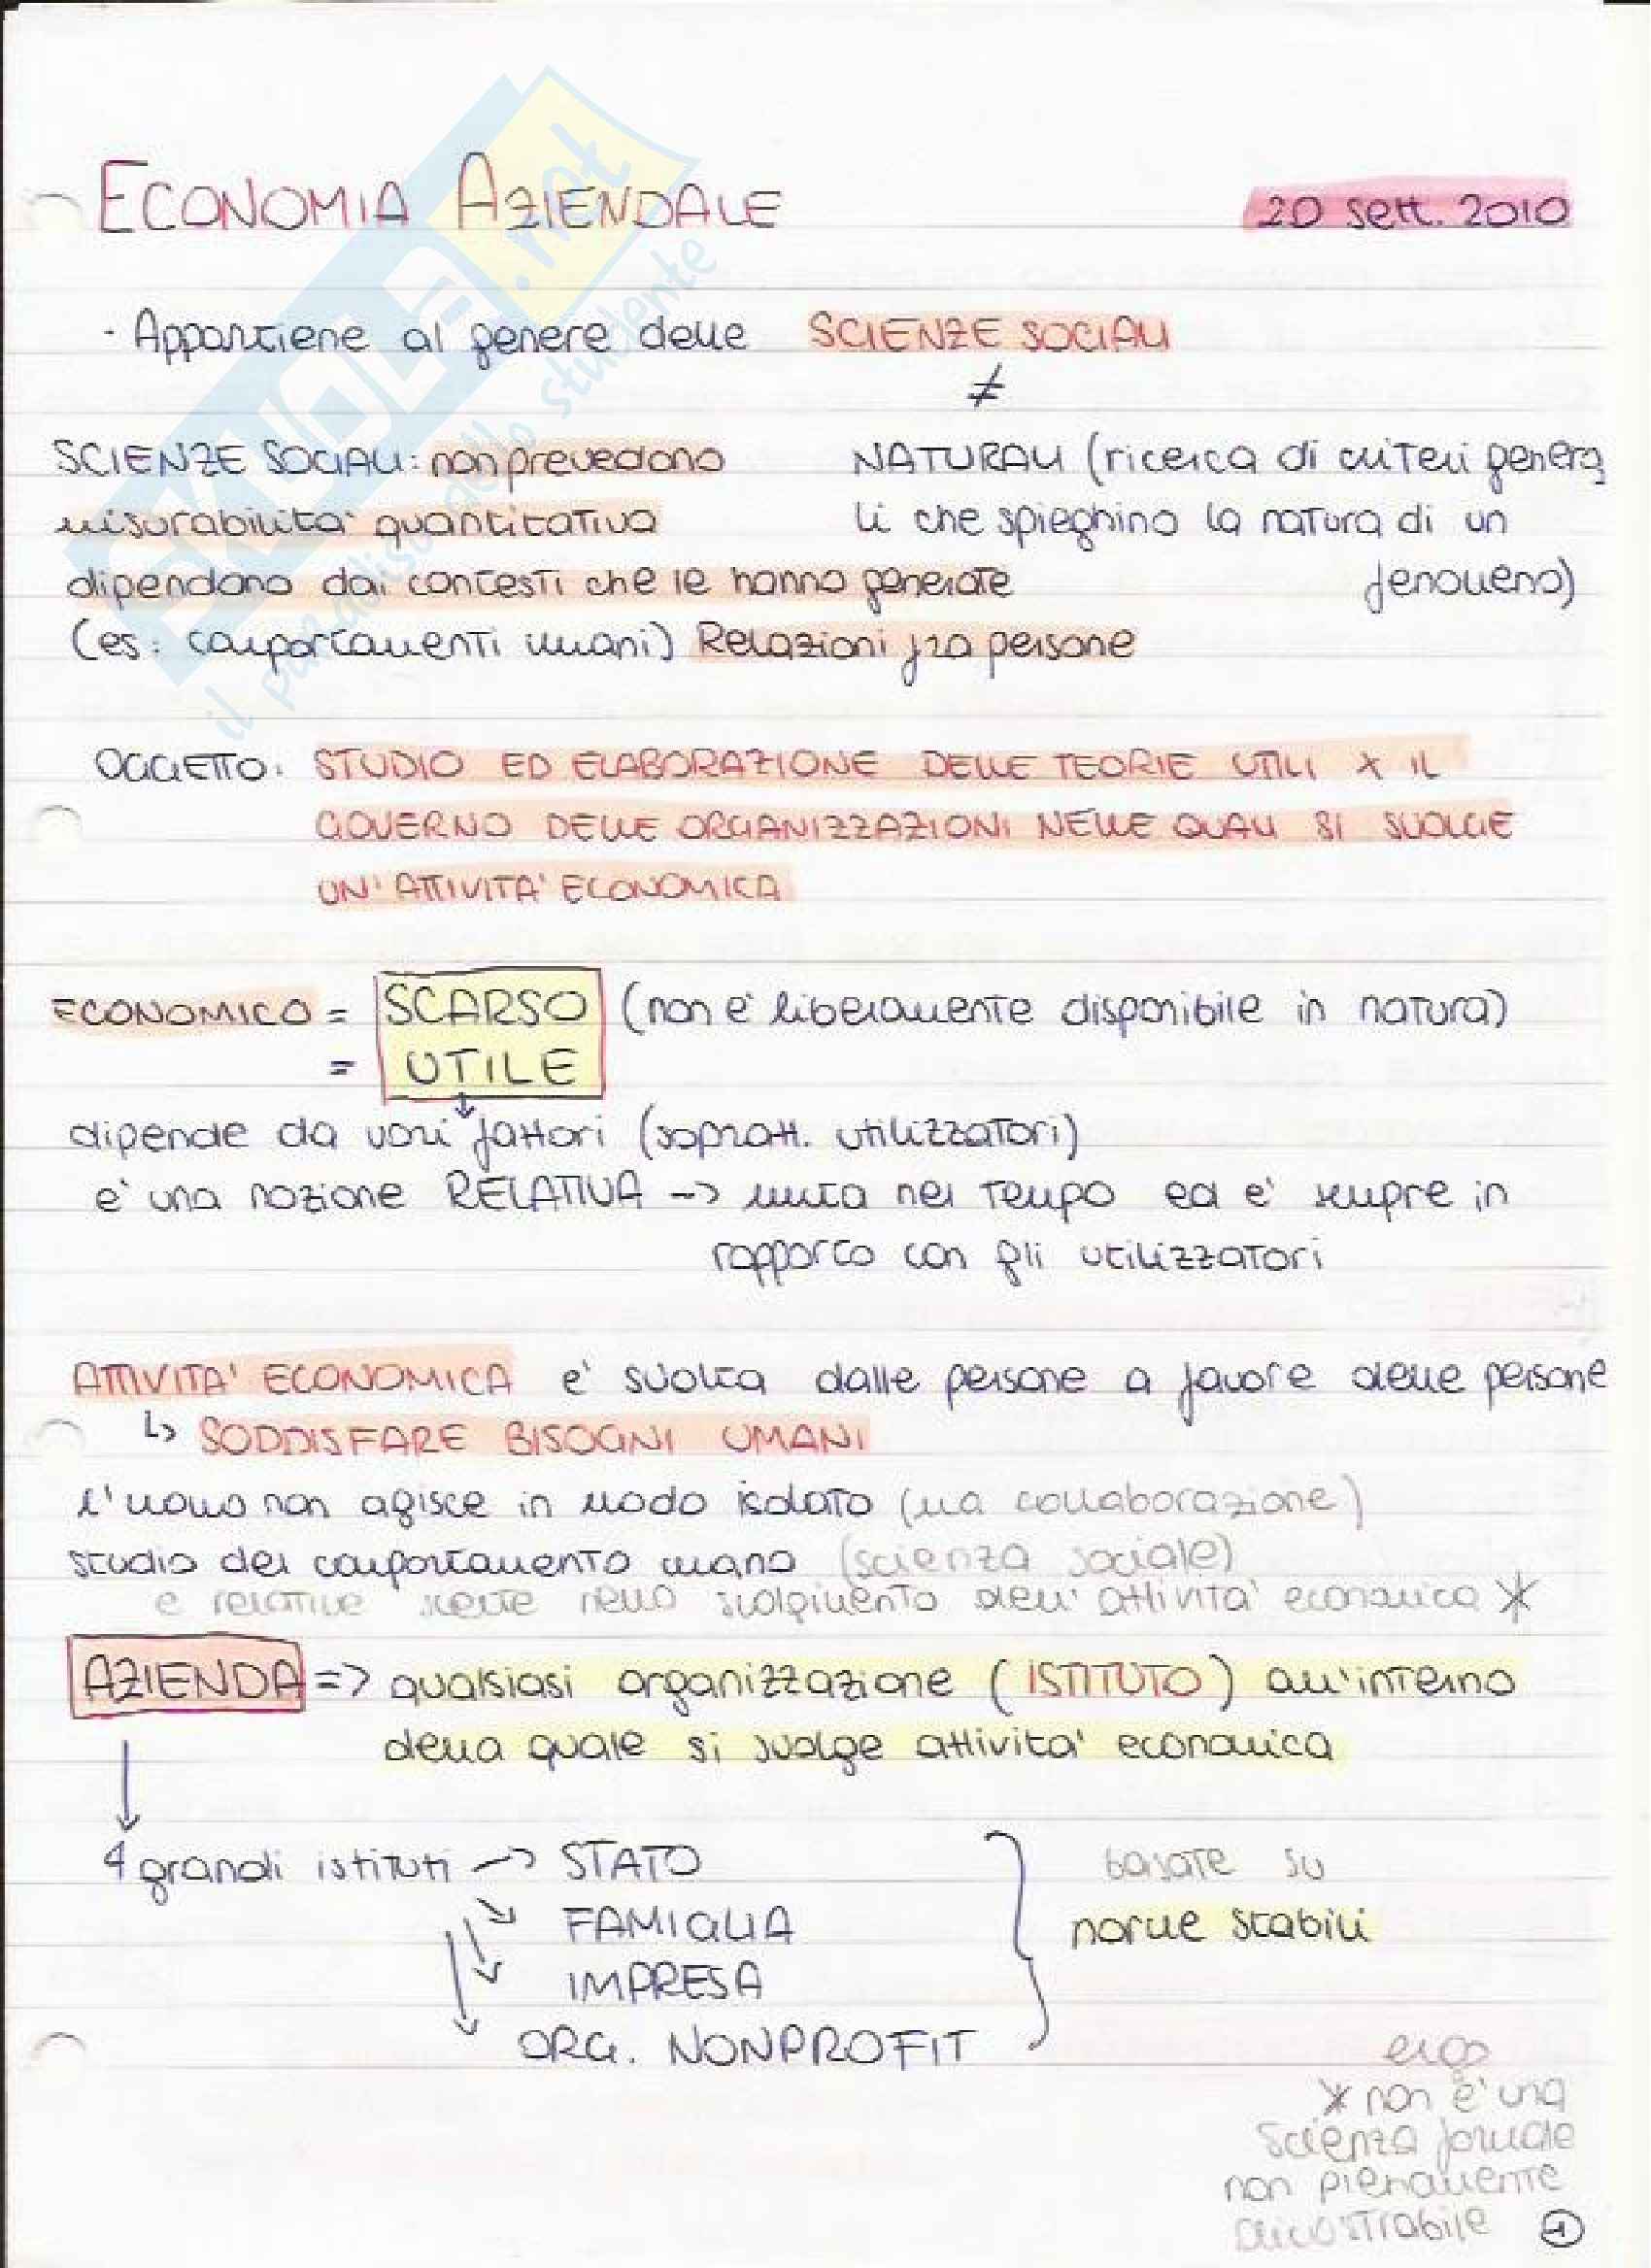 ECONOMIA AZIENDALE
20 sett. 2010
- Appartiene al genere delle SCIENZE SOCIALI
≠
SCIENZE SOCIALI: non prevedono
misurabilità quantitativa
NATURALI (ricerca di criteri genera
li che spieghino la natura di un
fenomeno)
dipendono dai contesti che le hanno generate
(es: comportamenti umani) Relazioni fra persone
OGGETTO: STUDIO ED ELABORAZIONE DELLE TEORIE UTILI X IL
GOVERNO DELLE ORGANIZZAZIONI NELLE QUALI SI SVOLGE
UN'ATTIVITA' ECONOMICA
ECONOMICO = SCARSO (non è liberamente disponibile in natura)
= UTILE
dipende da vari fattori (sopratt. utilizzatori)
e' una nozione RELATIVA -> muta nel tempo ed e' sempre in
rapporto con gli utilizzatori
ATTIVITA' ECONOMICA e' svolta dalle persone a favore delle persone
↳ SODDISFARE BISOGNI UMANI
l'uomo non agisce in modo isolato (ma collaborazione)
studio del comportamento umano (scienza sociale)
e relative scelte nello svolgimento dell'attivita' economica *
AZIENDA => qualsiasi organizzazione (ISTITUTO) all'interno
della quale si svolge attivita' economica
4 grandi istituti -> STATO
FAMIGLIA
IMPRESA
ORG. NONPROFIT
basate su
norme stabili
ergo
* non e' una
scienza formale
non pienamente
dimostrabile
1
SKUOLA.net
il paradiso dello studente